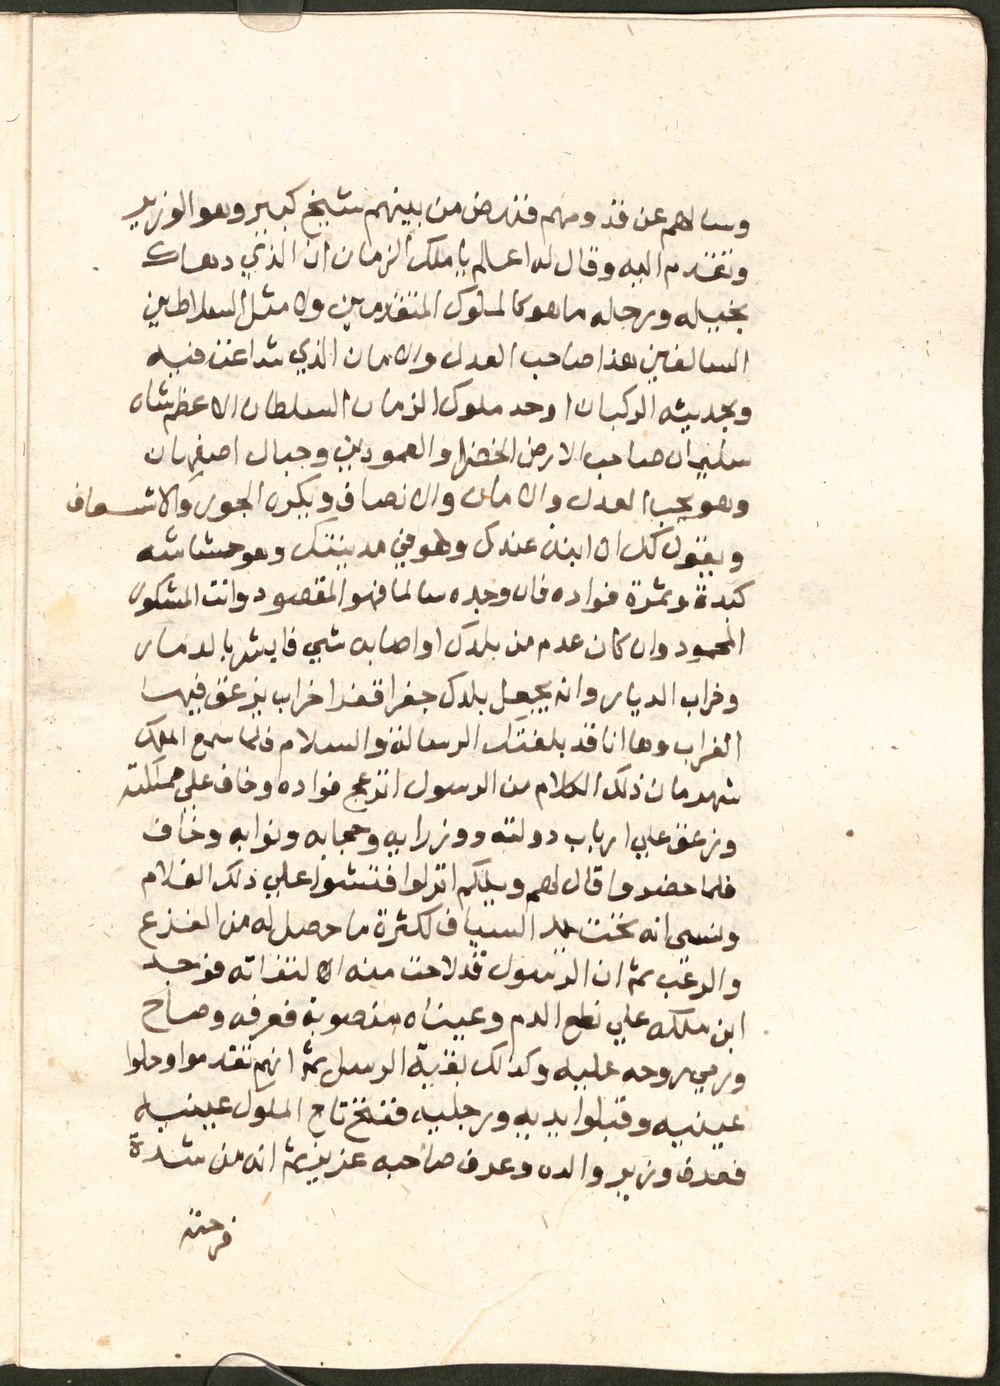 وسالهم عن قدومهم فنهض من بينهم شيخ كبير وهو الوزير
وتقدم اليه وقال له اعلم يا ملك الزمان ان الذي دهاك
بخيله ورجله ما هو كالملوك المتقدمين ولا مثل السلاطين
السالفين هذا صاحب العدل والامان الذي شاعت فيه
وبحديثه الركبان اوحد ملوك الزمان السلطان الاعظم شاه
سليمان صاحب الارض الخضرا والعمودين وجبال اصفهان
وهو يحب العدل والامان والانصاف ويكره الجور والاسعاف
ويقول لك ان ابنه عندك وهو في مدينتك وهو حشاشه
كبدة وثمرة فواده فان وجده سالما فهو المقصود وانت المشكور
المحمود وان كان عدم من بلدك او اصابه شي فابشر بالدمار
وخراب الديار وانه يجعل بلدك خراب يزعق فيها
الغراب وها انا قد بلغتك الرسالة والسلام فلما سمع الملك
شهرمان ذلك الكلام من الرسول انزعج فواده وخاف على مملكته
وزعق علي ارباب دولته ووزرايه وحجابه ونوابه وخاف
فلما حضروا قال لهم ويلكم انزلوا فتشوا علي ذلك الغلام
ونسي انه تحت يد السياف لكثرة ما حصل له من الفزع
والرعب ثم ان الرسول قد لاحت منه الالتفاته فوجد
ابن ملكه علي نطع الدم وعيناه منصوبة فعرفه وصاح
ورمي روحه عليه وكذلك بقية الرسل ثم انهم تقدموا وحلوا
عينيه وقبلوا يديه ورجليه ففتح تاج الملوك عينيه
فعرف وزير والده وعرف صاحبه عزيز ثم انه من شدة
فرحته